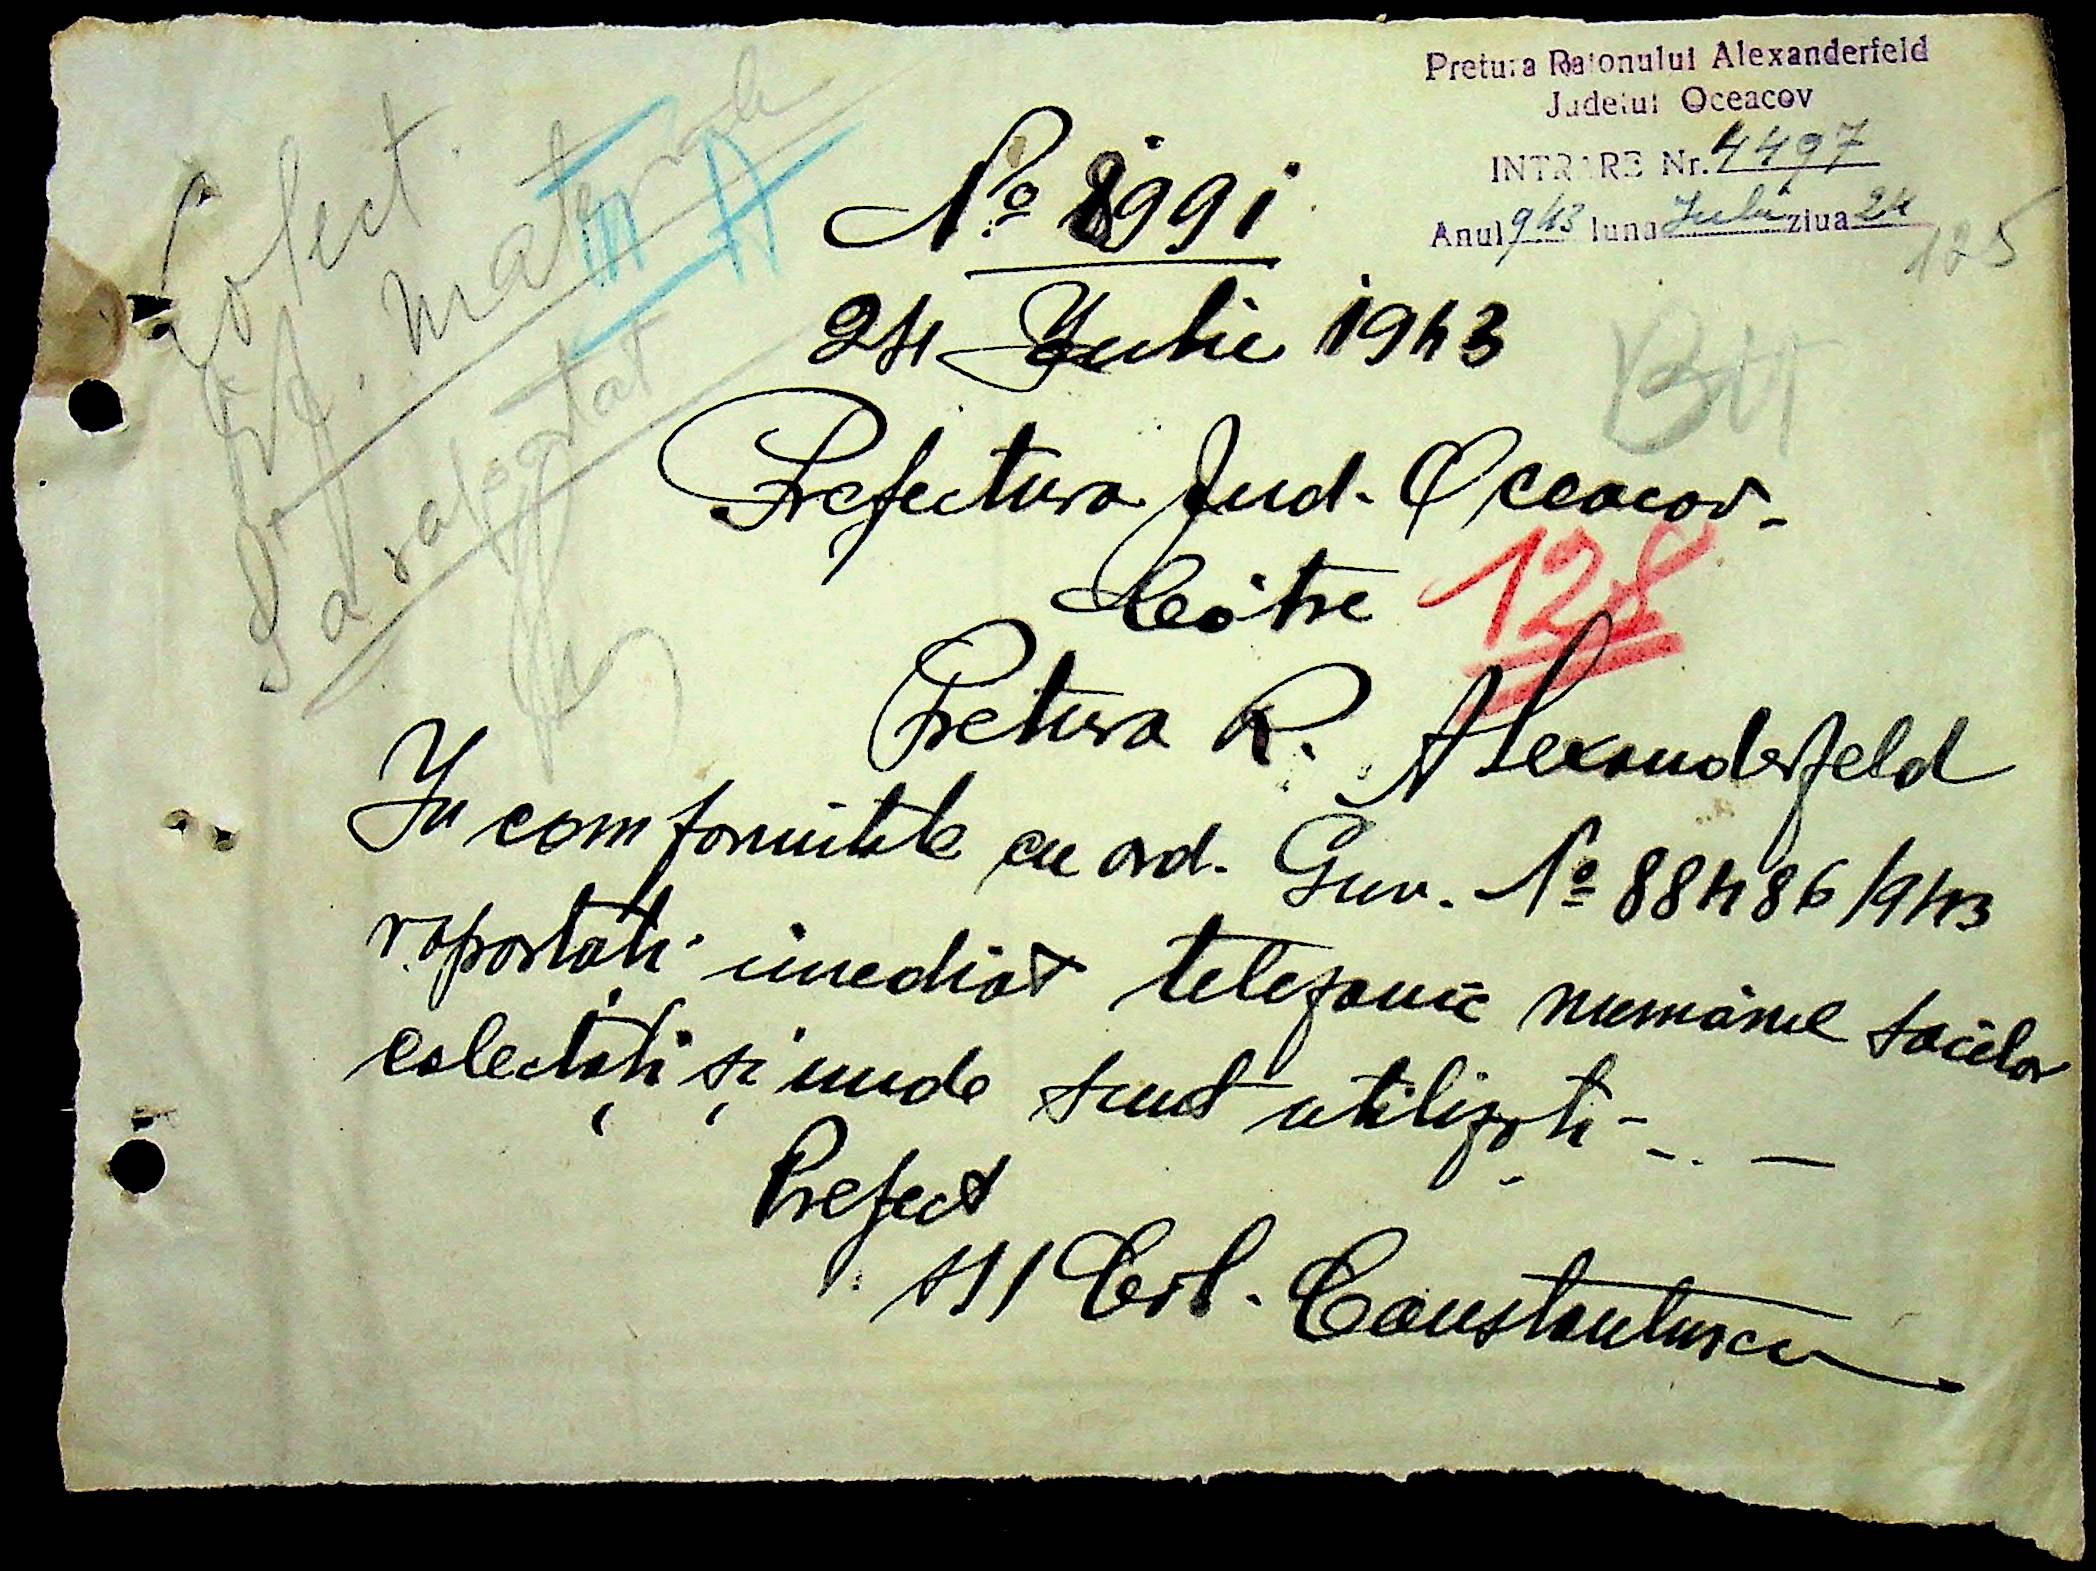 Pretura Raionului Alexanderfeld
Judetul Oceacov
INTRARE Nr. 4497
Anul 943 luna Iulie ziua 24
125
Colect.
materiale
S'a raportat
III A
No 8991
24 Iulie 1943
Prefectura Jud. Oceacov.
128
Către
Pretura R. Alexanderfeld
In comformitate cu ord. Guv. No 88486/943
raportați imediat telefonic numărul sacilor
colectați și unde sunt utilizați -
Prefect
ss/ Col. Constantinescu